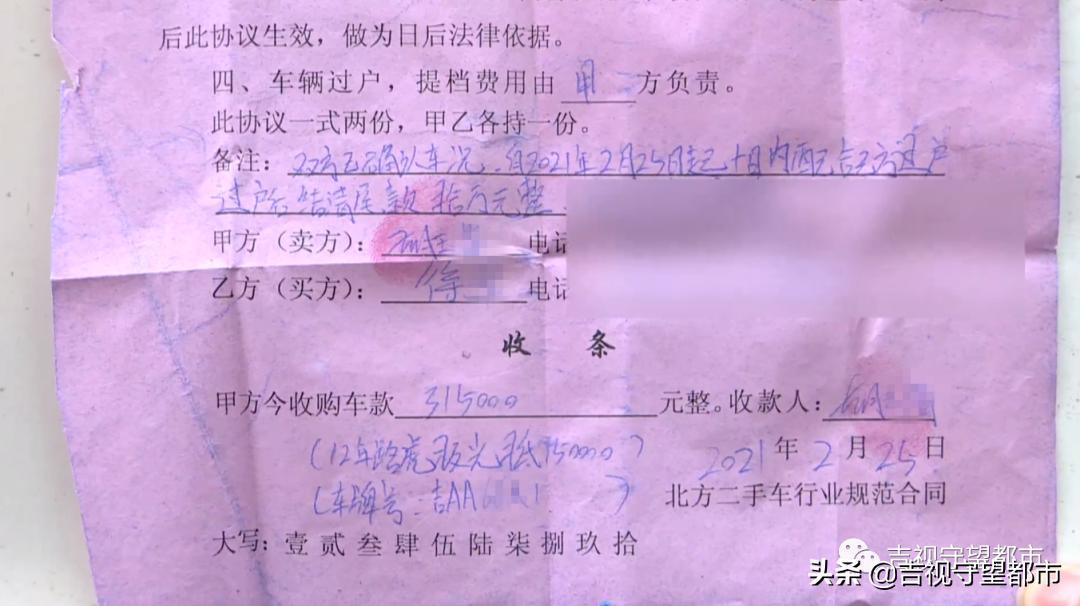 后此协议生效，做为日后法律依据。
四、车辆过户，提档费用由 甲 方负责。
此协议一式两份，甲乙各持一份。
备注：双方已确认车况、自2021年2月25日起十日内配合乙方过户
过户后结清尾款 拾万元整
甲方（卖方）： 电话
乙方（买方）：徐 电话
收 条
甲方今收购车款 315000 元整。收款人：
（12年路虎极光抵150000）
2021年2月25日
（车牌号：吉AA 1 ）
北方二手车行业规范合同
大写：壹贰叁肆伍陆柒捌玖拾
吉视守望都市
头条 @吉视守望都市